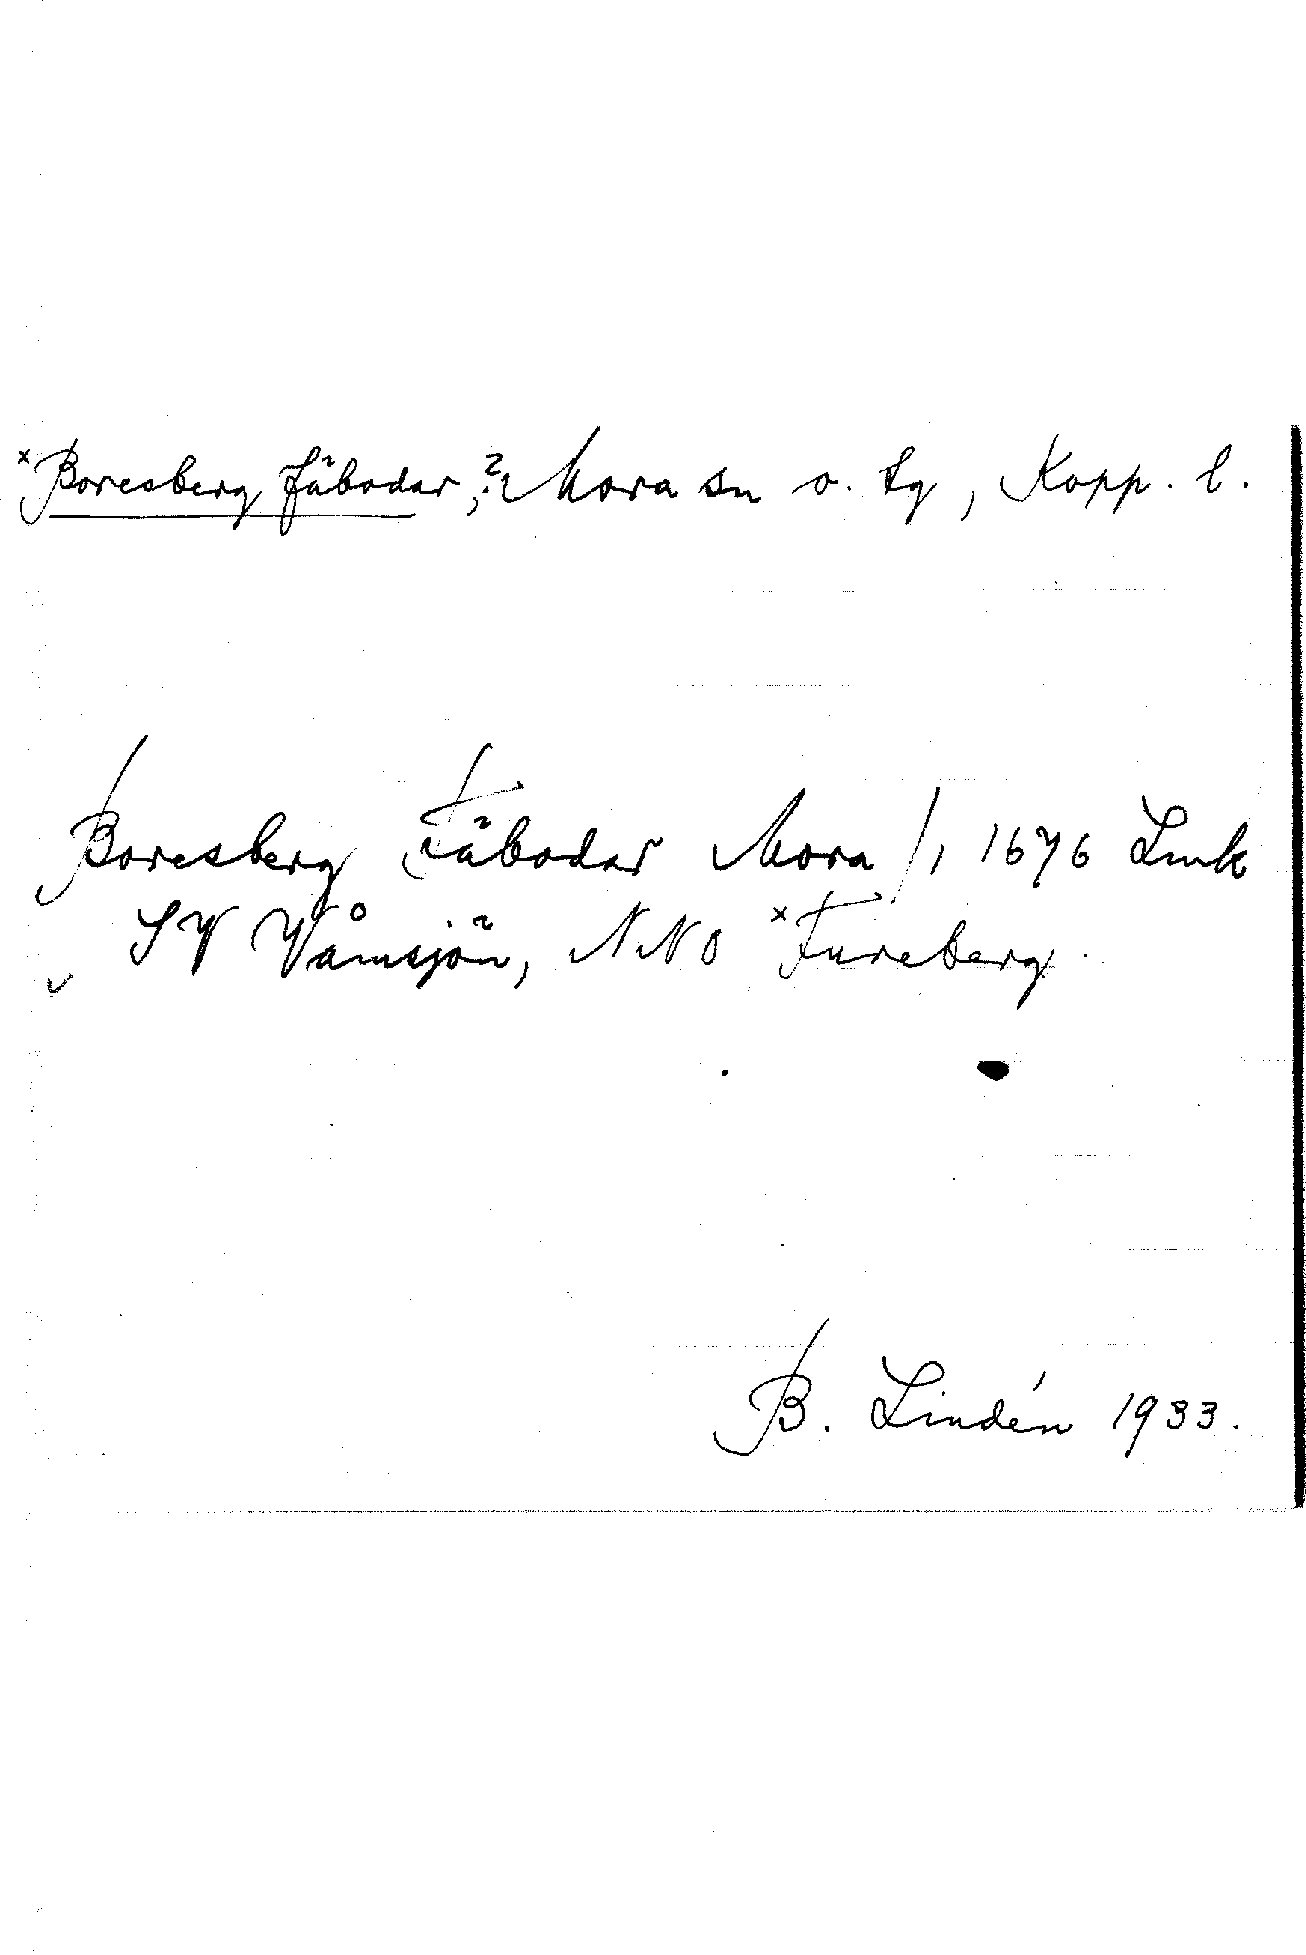 ˣBoresberg fäbodar,? Mora sn o. tg, Kopp. l.
Boresberg Fäbodar Mora /, 1676 Lmk
SV Våmsjön, NNO ˣFureberg.
B. Lindén 1933.